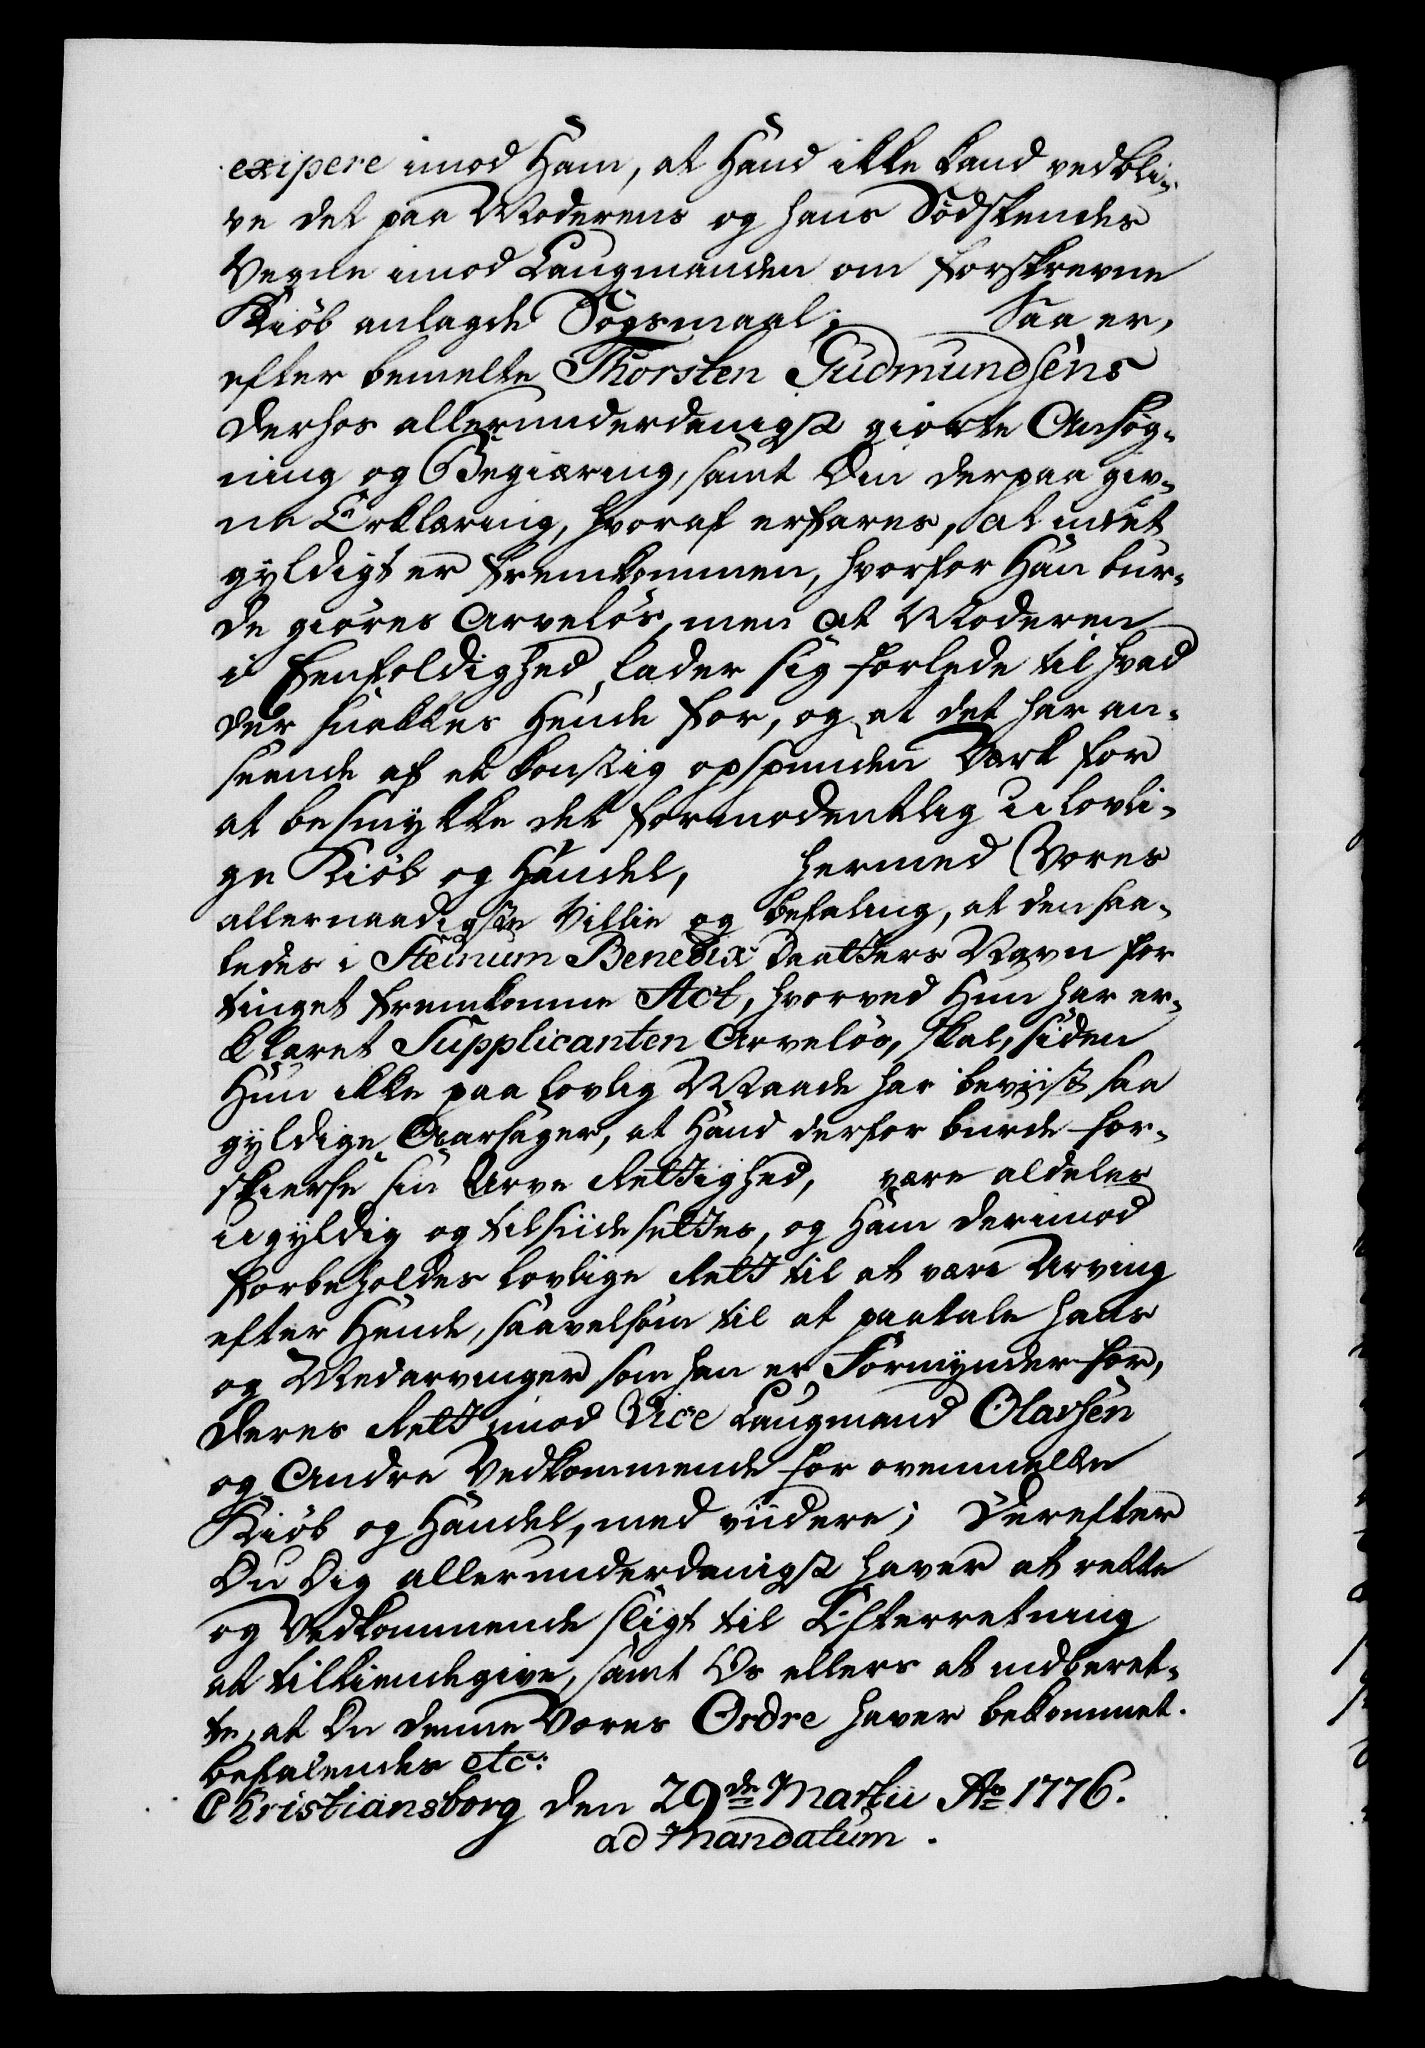 exipere imod Ham, at Hand ikke kand vedbli-
ve det paa Moderens og hans Sødskendes
Vegne imod Laugmanden om forskrevne
Kiøb anlagde Søgsmaal; Saa er,
efter bemelte Thorsten Gudmundsens
derhos allerunderdanigst giorte Ansøg-
ning og Begiæring, samt Din derpaa giv-
ne Erklæring, hvoraf erfares, at intet
gyldigt er fremkommen, hvorfor Han bur-
de giøres Arveløs, men at Moderen
i Eenfoldighed lader sig forlede til hvad
der snakkes Hende for, og at det har an-
seende af et konstig opspunden Værk for
at besmykke det formodentlig ulovli-
ge Kiøb og Handel, hermed Vores
allernaadigste Villie og befaling, at den saa-
ledes i Steinum Benedix Daatters Navn for
tinget fremkomne Act, hvorved Hun har er-
klæret Supplicanten Arveløs, skal, siden
Hun ikke paa lovlig Maade har beviist saa
gyldige Aarsager, at Hand derfor burde for-
skierse sin Arve Rettighed, være aldeles
ugyldig og tilsiidesettes, og Ham derimod
forbeholdes lovlige Rett til at være Arving
efter Hende, saavelsom til at paatale hans
og Medarvinger som han er Formynder for,
deres Rett imod Vice Laugmand Olavsen
og Andre Vedkommende for ovenmelte
Kiøb og Handel, med viidere; Derefter
Du Dig allerunderdanigst haver at rette
og Vedkommende sligt til Efterretning
at tilkiendegive, samt Os ellers at indberet-
te, at Du denne Vores Ordre haver bekommet.
befalendes etc:
Christiansborg den 29de Martii Ao 1776.
ad Mandatum.